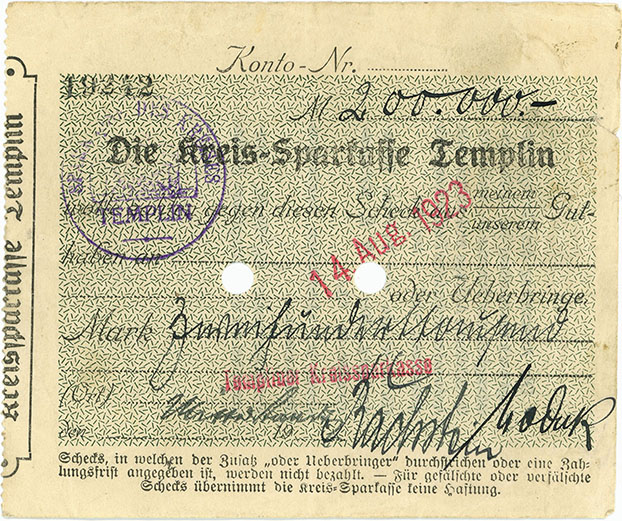 Kreissparkasse Templin
Konto-Nr.
19242
M 200.000.-
Die Kreis-Sparkasse Templin
TEMPLIN
gegen diesen Scheck aus meinem
unserem Gut-
haben an
14 Aug. 1923
oder Ueberbringer
Mark Zweihunderttausend
Templiner Kreissparkasse
(Ort)
den 19
Schecks, in welchen der Zusatz „oder Ueberbringer" durchstrichen oder eine Zah-
lungsfrist angegeben ist, werden nicht bezahlt. — Für gefälschte oder verfälschte
Schecks übernimmt die Kreis-Sparkasse keine Haftung.